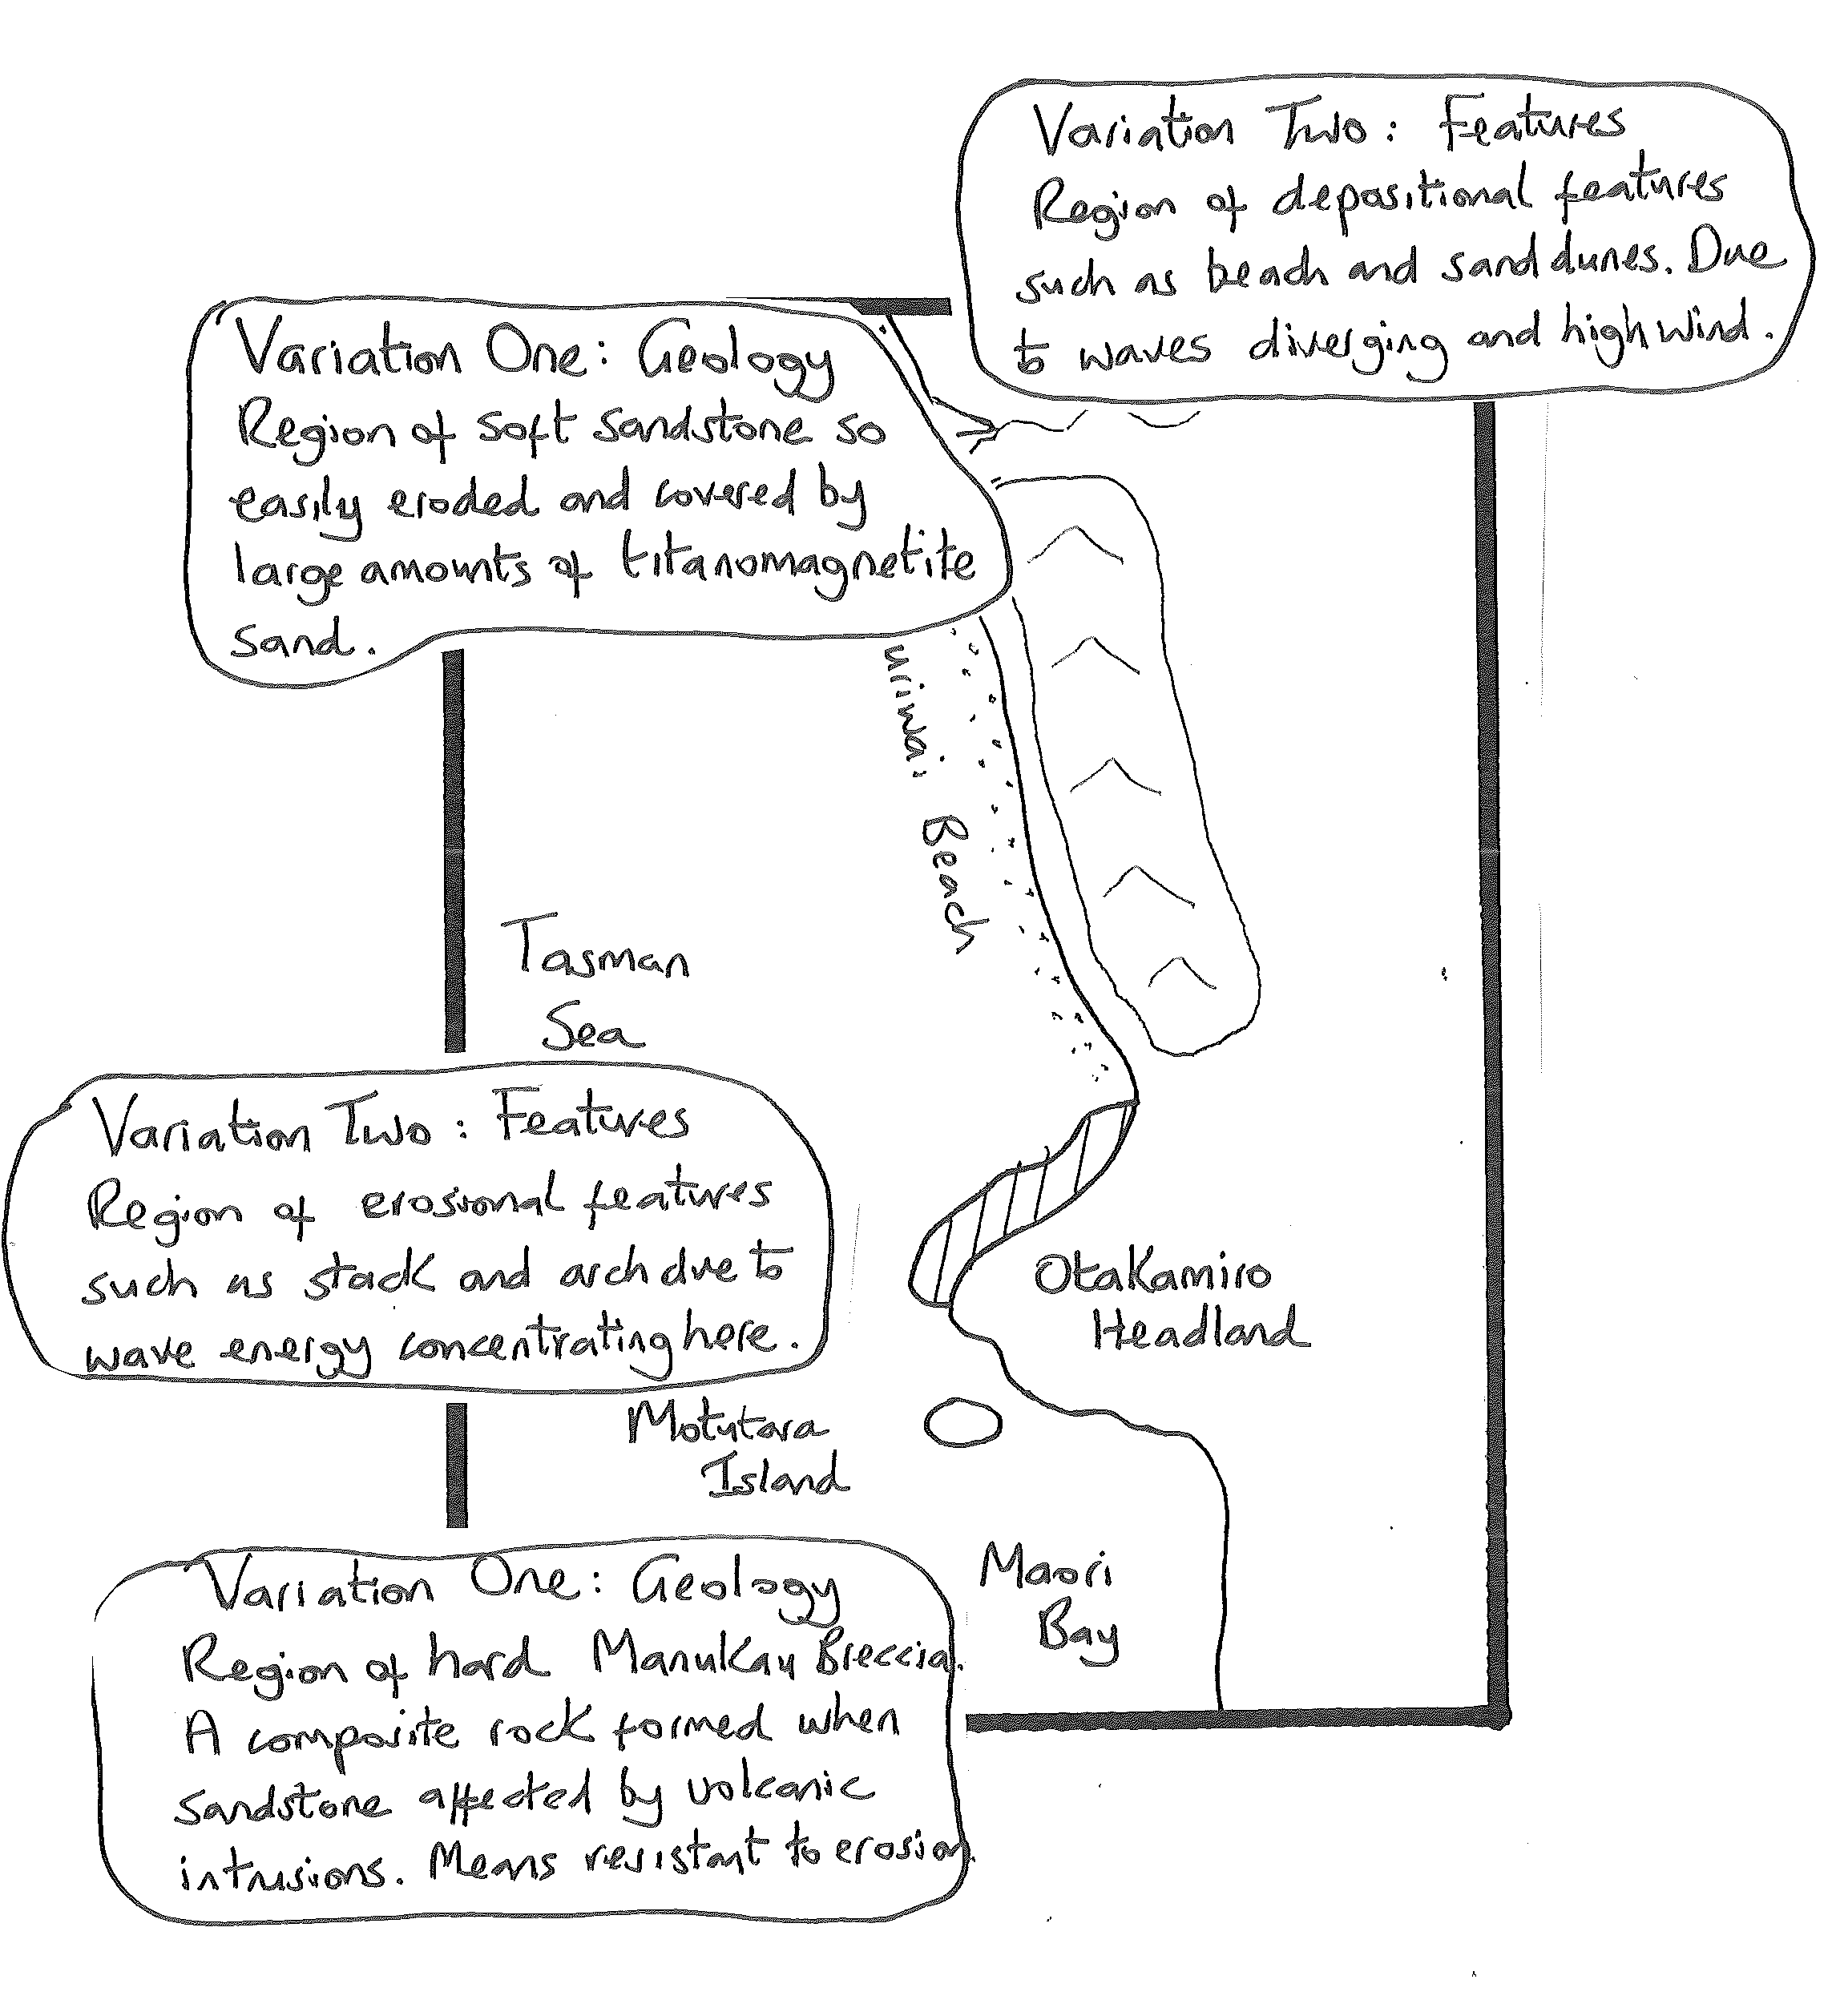 Variation Two: Features
Region of depositional features
such as beach and sand dunes. Due
to waves diverging and high wind.
Variation One: Geology
Region of soft sandstone so
easily eroded and covered by
large amounts of titanomagnetite
sand.
uriwai Beach
Tasman
Sea
Variation Two: Features
Region of erosional features
such as stack and arch due to
wave energy concentrating here.
Otakamiro
Headland
Motutara
Island
Maori
Bay
Variation One: Geology
Region of hard Manukau Breccia.
A composite rock formed when
sandstone affected by volcanic
intrusions. Means resistant to erosion.